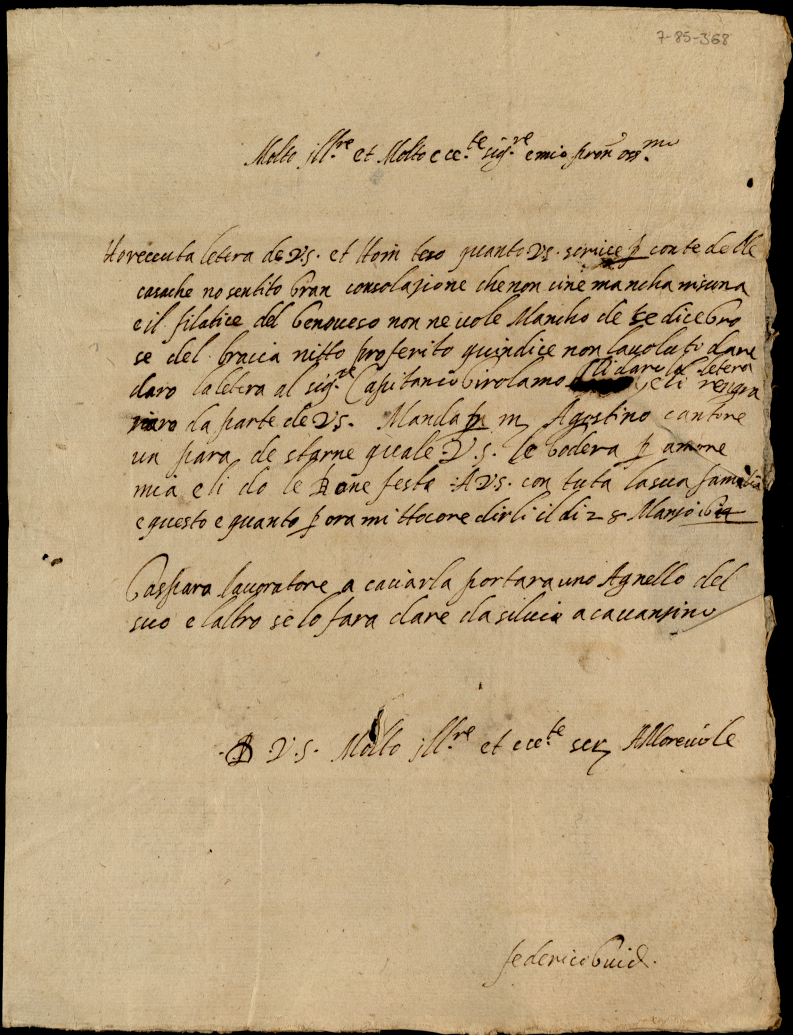 7-85-368
Molto ill.re et Molto ecce.te sig.re e mio pron oss.mo
Ho receuta letera de V.S. et Hoin teso quanto V.S. scrive p conte delle
casache no sentito Gran consolazione che non vine mancha nisuna
e il filatice del Genoveso non ne vole Mancho de sedice Gro
se del braccia nitto proferito quindice non lavoluti dare
daro la letera al sig.re Capitanio Girolamo e li rengra
li dare la letera
ziaro da parte de V.S. Manda p m Agostino cantore
un para de starne quale V.S. le Godera p amore
mia e li do le Bone feste A V.S. con tuta la sua familia
e questo e quanto p ora mi ttocore dirli il di 28 Marzo
Gaspara lavoratore a caviarla portara uno Agnello del
suo e laltro se lo fara dare da silvio a cavanzino
D V.S. Molto ill.re et ecce.te ser AMorevole
federico Guid.